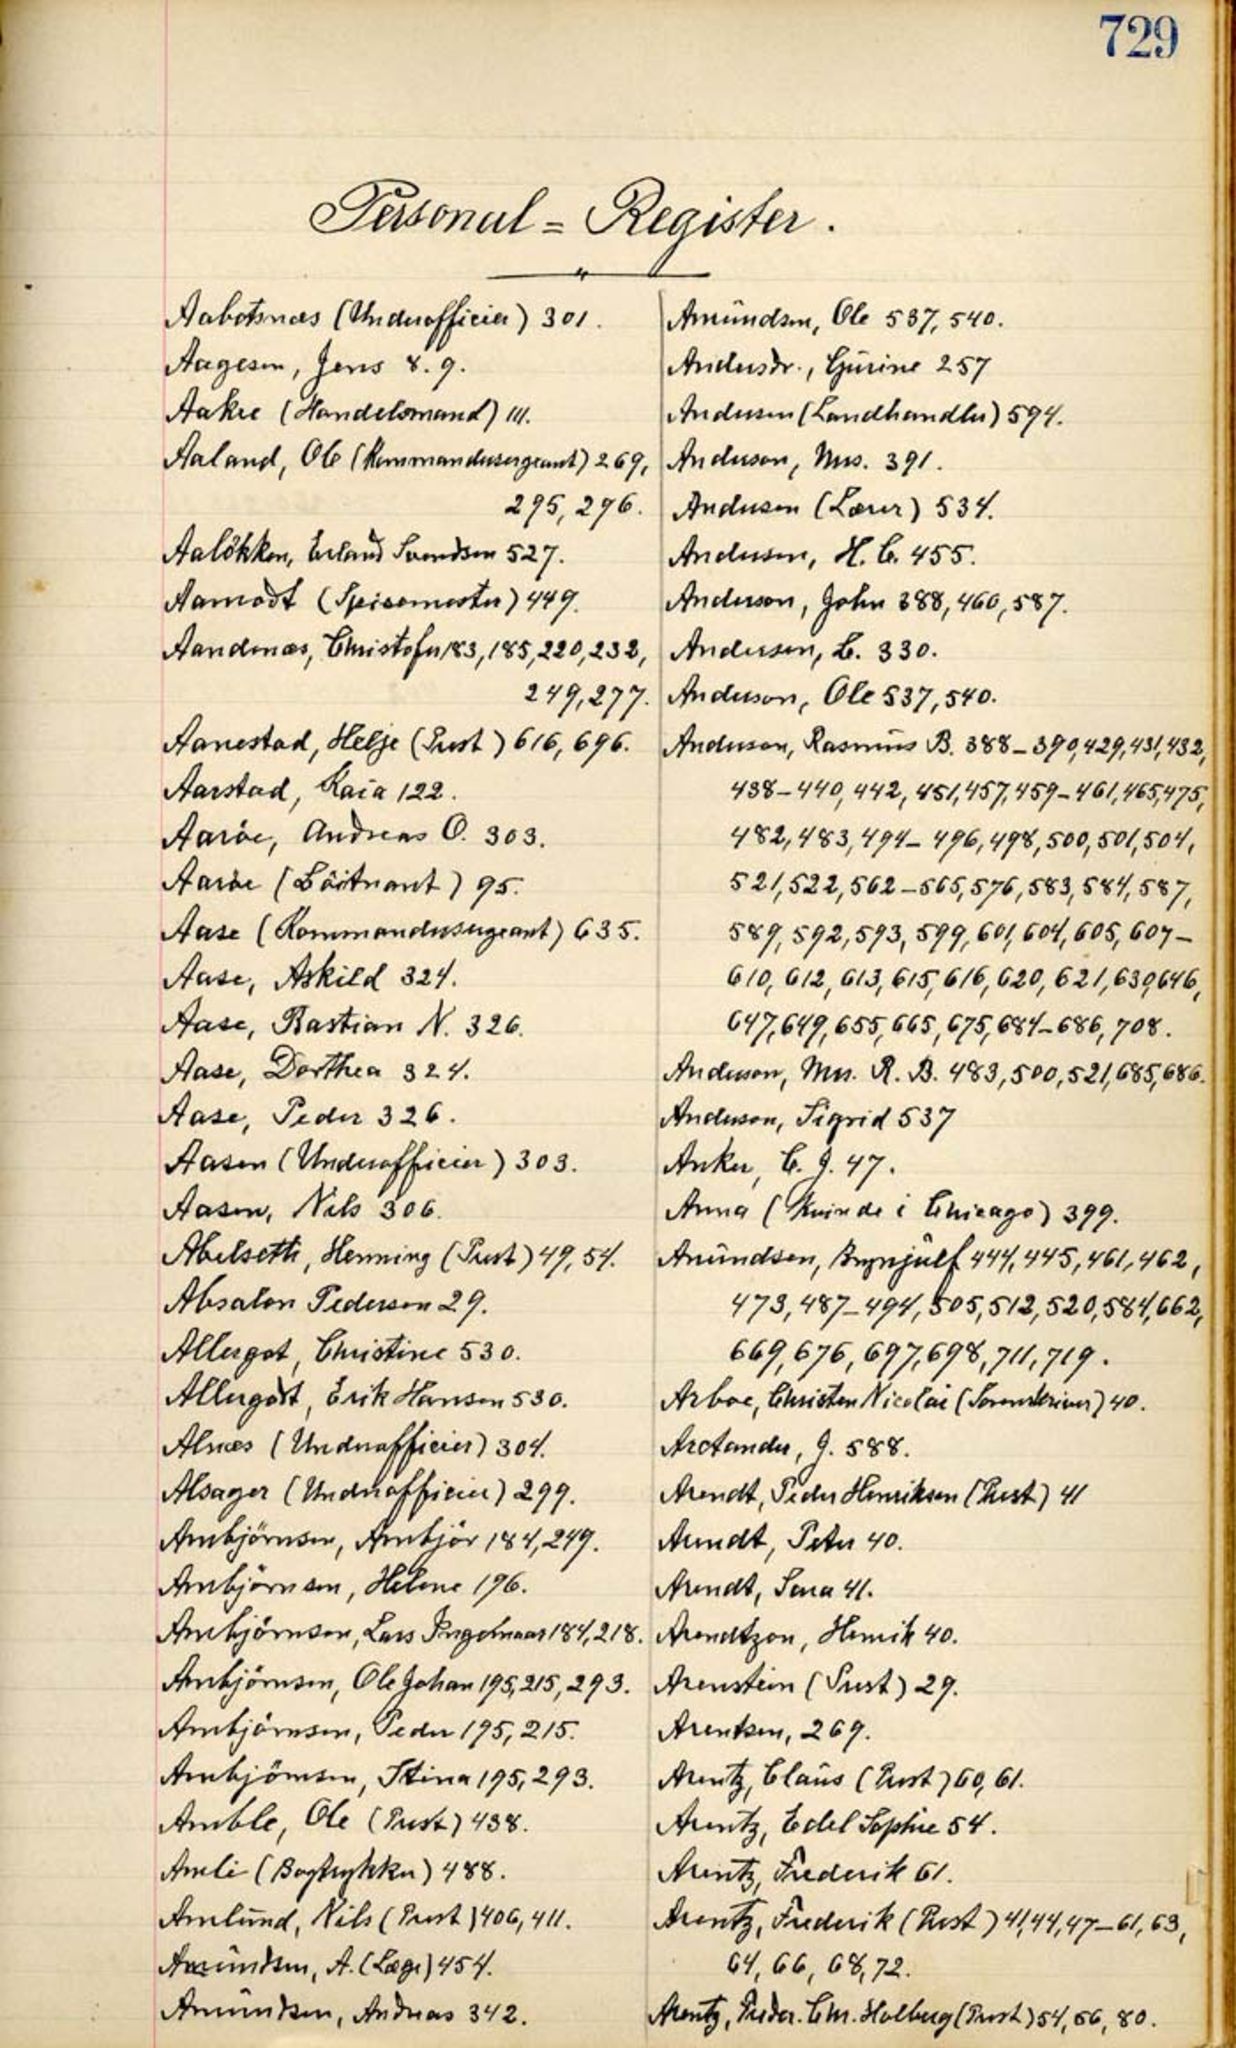 729
Personal = Register.
Aabotsnæs (Underofficier) 301.
Aagesen, Jens 8. 9.
Aakre (Handelsmand) 111.
Aaland, Ole (Kommandersergeant) 269,
295, 296.
Aalökken, Erland Svendsen 527.
Aamodt (Spisemester) 449.
Aandenæs, Christofer 183, 185, 220, 232,
249, 277.
Aanestad, Helje (Prest) 616, 696.
Aarstad, Kaia 122.
Aaröe, Andreas O. 303.
Aaröe (Löitnant) 95.
Aase (Kommandersergeant) 635.
Aase, Askild 324.
Aase, Bastian N. 326.
Aase, Dorthea 324.
Aase, Peder 326.
Aasen (Underofficier) 303.
Aasen, Nils 306.
Abelseth, Henning (Prest) 49, 54.
Absalon Pederson 29.
Allergot, Christine 530.
Allergodt, Erik Hansen 530.
Alnæs (Underofficier) 304.
Alsager (Underofficier) 299.
Ambjörnsen, Ambjör 184, 249.
Ambjörnsen, Helene 196.
Ambjörnsen, Lars Ingelmar 184, 218.
Ambjörnsen, Ole Johan 195, 215, 293.
Ambjörnsen, Peder 195, 215.
Ambjörnsen, Stina 195, 293.
Amble, Ole (Prest) 438.
Ameli (Bogtrykker) 488.
Amlund, Nils (Prest) 406, 411.
Amundsen, A. (Læge) 454.
Amundsen, Andreas 342.
Amundsen, Ole 537, 540.
Andersdr., Gurine 257
Andersen (Landhandler) 594.
Anderson, Mrs. 391.
Andersen (Lærer) 534.
Andersen, H. C. 455.
Anderson, John 388, 460, 587.
Andersen, L. 330.
Anderson, Ole 537, 540.
Anderson, Rasmus B. 388–390, 429, 431, 432,
438–440, 442, 451, 457, 459–461, 465, 475,
482, 483, 494–496, 498, 500, 501, 504,
521, 522, 562–565, 576, 583, 584, 587,
589, 592, 593, 599, 601, 604, 605, 607–
610, 612, 613, 615, 616, 620, 621, 630, 646,
647, 649, 655, 665, 675, 684–686, 708.
Anderson, Mrs. R. B. 483, 500, 521, 685, 686.
Anderson, Sigrid 537
Anker, C. J. 47.
Anna (Kvinde i Chicago) 399.
Anundsen, Brynjulf 444, 445, 461, 462,
473, 487–494, 505, 512, 520, 584, 662,
669, 676, 697, 698, 711, 719.
Arboe, Christen Nicolai (Sorenskriver) 40.
Arctander, J. 588.
Arendt, Peder Henriksen (Prest) 41
Arendt, Peter 40.
Arendt, Sara 41.
Arendtzon, Henrik 40.
Arenstein (Prest) 29.
Arentsen, 269.
Arentz, Claus (Prest) 60, 61.
Arentz, Edel Sophie 54.
Arentz, Frederik 61.
Arentz, Frederik (Prest) 41, 44, 47–61, 63,
64, 66, 68, 72.
Arentz, Freder. Chr. Holberg (Prest) 54, 56, 80.